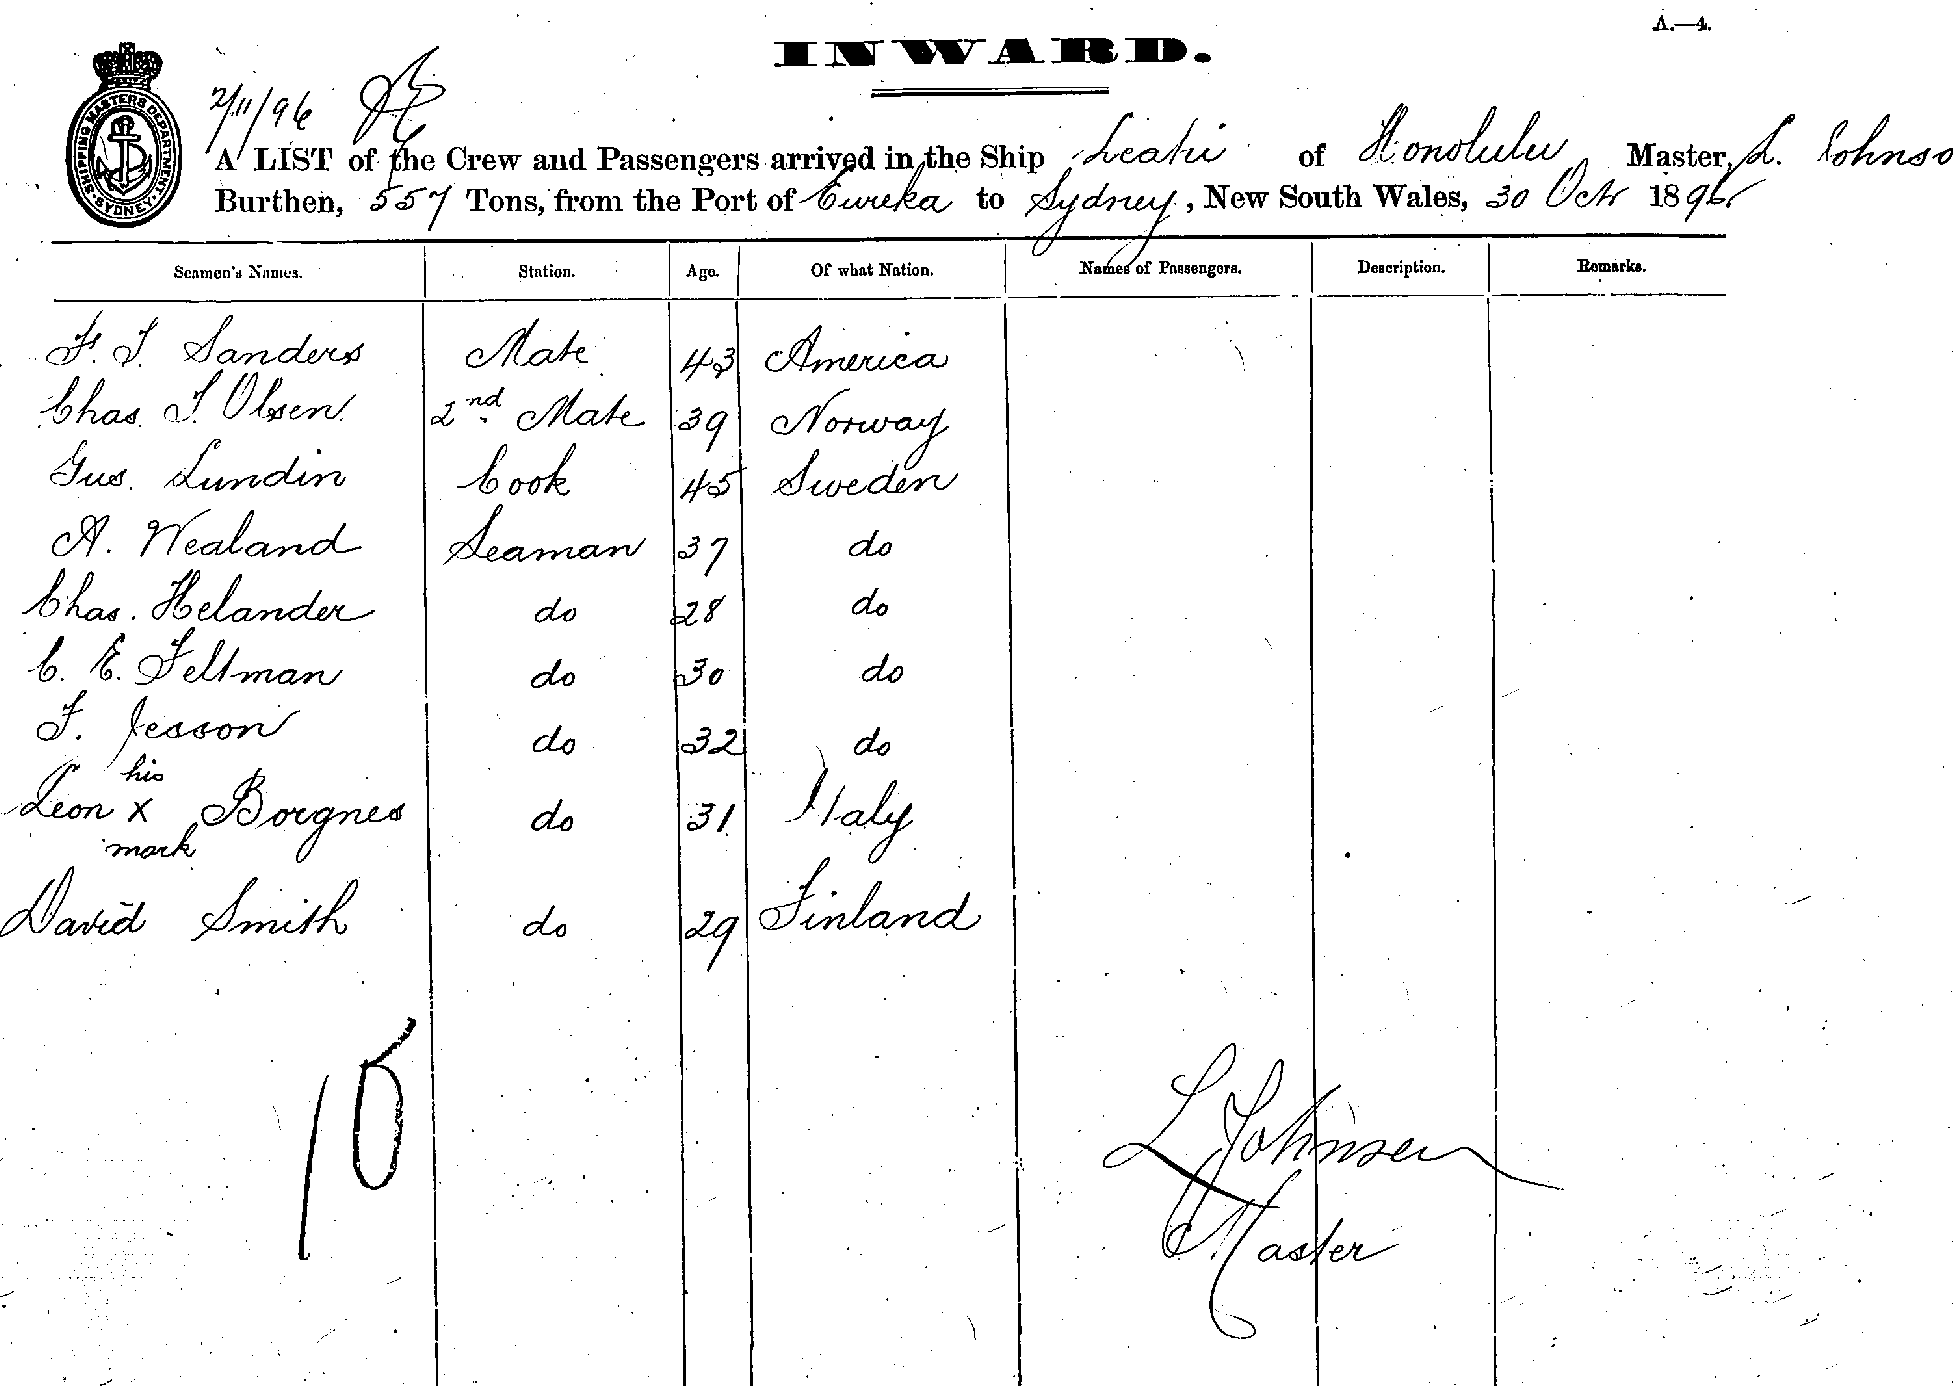 A.—4.
INWARD.
SHIPPING MASTERS DEPARTMENT SYDNEY
2/11/96
A LIST of the Crew and Passengers arrived in the Ship Leahi of Honolulu Master, L. Johnso
Burthen, 557 Tons, from the Port of Eureka to Sydney, New South Wales, 30 Octr 1896
Seamen's Names. Station. Age. Of what Nation. Names of Passengers. Description. Remarks.
F. J. Sanders Mate 43 America
Chas. J. Olsen 2nd Mate 39 Norway
Gus. Lundin Cook 45 Sweden
A. Wealand Seaman 37 do
Chas. Helander do 28 do
C. E. Feltman do 30 do
F. Jesson do 32 do
his
Leon x Borgnes do 31 Italy
mark
David Smith do 29 Finland
10
L Johnson
Master